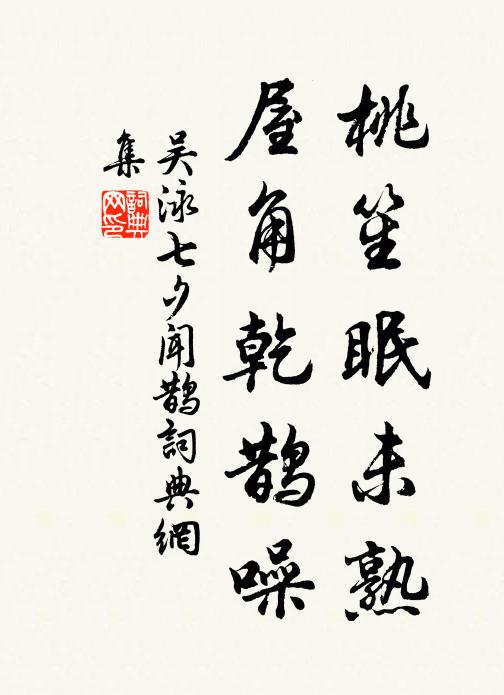 桃笙眠未熟
屋角乾鵲噪
吴泳七夕闻鵲詞典網
集
詞典
网印